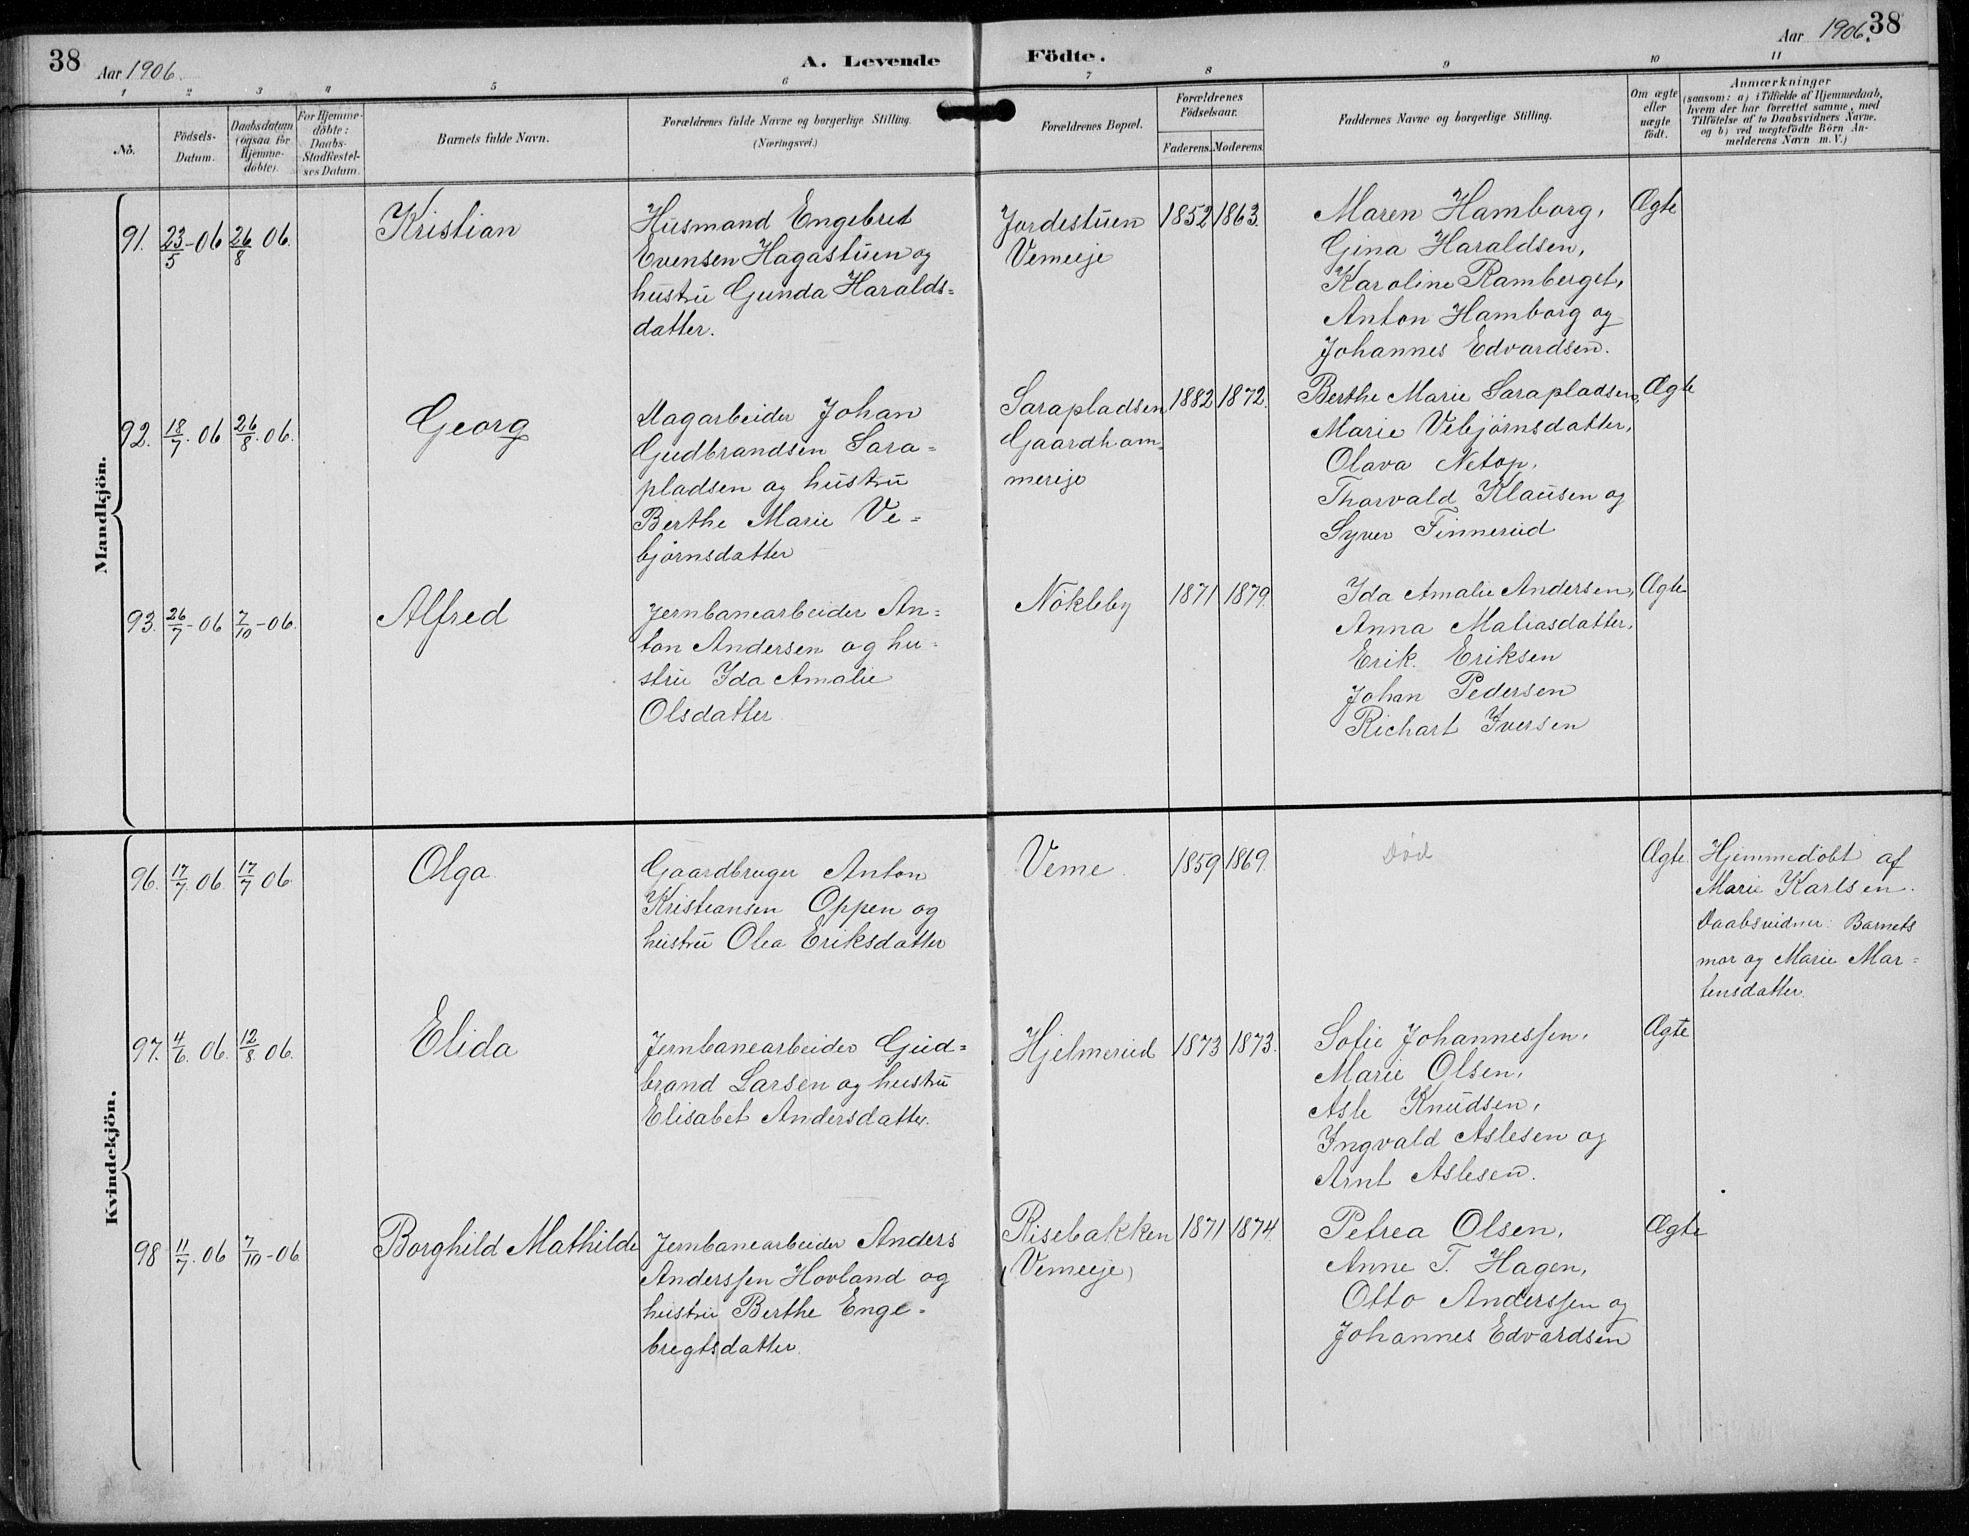 38
Aar 1906.
A. Levende
Födte.
Aar 1906.
38
1
2
3
4
5
6
7
8
9
10
11
No.
Födsels-
Datum.
Daabsdatum
(ogsaa for
Hjemme-
döbte).
For Hjemme-
döbte:
Daabs-
Stadfæstel-
ses Datum.
Barnets fulde Navn.
Forældrenes fulde Navne og borgerlige Stilling.
(Næringsvei.)
Forældrenes Bopæl.
Forældrenes
Födselsaar.
Faderens.
Moderens.
Faddernes Navne og borgerlige Stilling.
Om ægte
eller
uægte
födt.
Anmærkninger
(saasom: a) i Tilfælde af Hjemmedaab,
hvem der har forrettet samme, med
Tilföielse af to Daabsvidners Navne.
og b) ved uægtefödte Börn An-
melderens Navn m. V.)
Mandkjön.
91.
23/5-06
26/8 06.
Kristian
Husmand Engebret
Evensen Hagastuen og
hustru Gunda Haralds=
datter.
Jordestuen
Vemeeje
1852
1863.
Maren Hamborg,
Gina Haraldsen,
Karoline Ramberget,
Anton Hamborg og
Johannes Edvardsen.
Ægte
92.
18/7. 06
26/8. 06.
Georg
Dagarbeider Johan
Gudbrandsen Sara=
pladsen og hustru
Berthe Marie Ve=
bjørnsdatter
Sarapladsen
Gaardham=
mereje
1882
1872.
Berthe Marie Sarapladsen,
Marie Vebjørnsdatter,
Olava Netop,
Thorvald Klausen og
Syver Finnerud
Ægte
93.
26/7-06
7/10-06.
Alfred
Jernbanearbeider An=
ton Andersen og hu=
stru Ida Amalie
Olsdatter
Nökleby
1871
1879.
Ida Amalie Andersen,
Anna Matiasdatter,
Erik Eriksen
Johan Pedersen
Richart Iversen
Ægte
Kvindekjön.
96.
17/7 06.
17/7 06
Olga
Gaardbruger Anton
Kristiansen Oppen og
hustru Olea Eriksdatter
Veme.
1859
1869.
Död
Ægte
Hjemmedöbt af
Marie Karlsen.
Daabsvidner: Barnets
mor og Marie Mar=
tensdatter.
97.
4/6. 06.
12/8 06.
Elida
Jernbanearbeider Gud=
brand Larsen og hustru
Elisabet Andersdatter.
Hjelmerud
1873
1873.
Sofie Johannessen,
Marie Olsen,
Asle Knudsen,
Ingvald Aslesen og
Arnt Aslesen.
Ægte
98
11/7. 06
7/10-06.
Borghild Mathilde
Jernbanearbeider Anders
Anderssen Hovland og
hustru Berthe Enge=
bregtsdatter.
Risebakken
(Vemeeje)
1871
1874.
Petrea Olsen,
Anne T. Hagen,
Otto Anderssen og
Johannes Edvardsen
Ægte